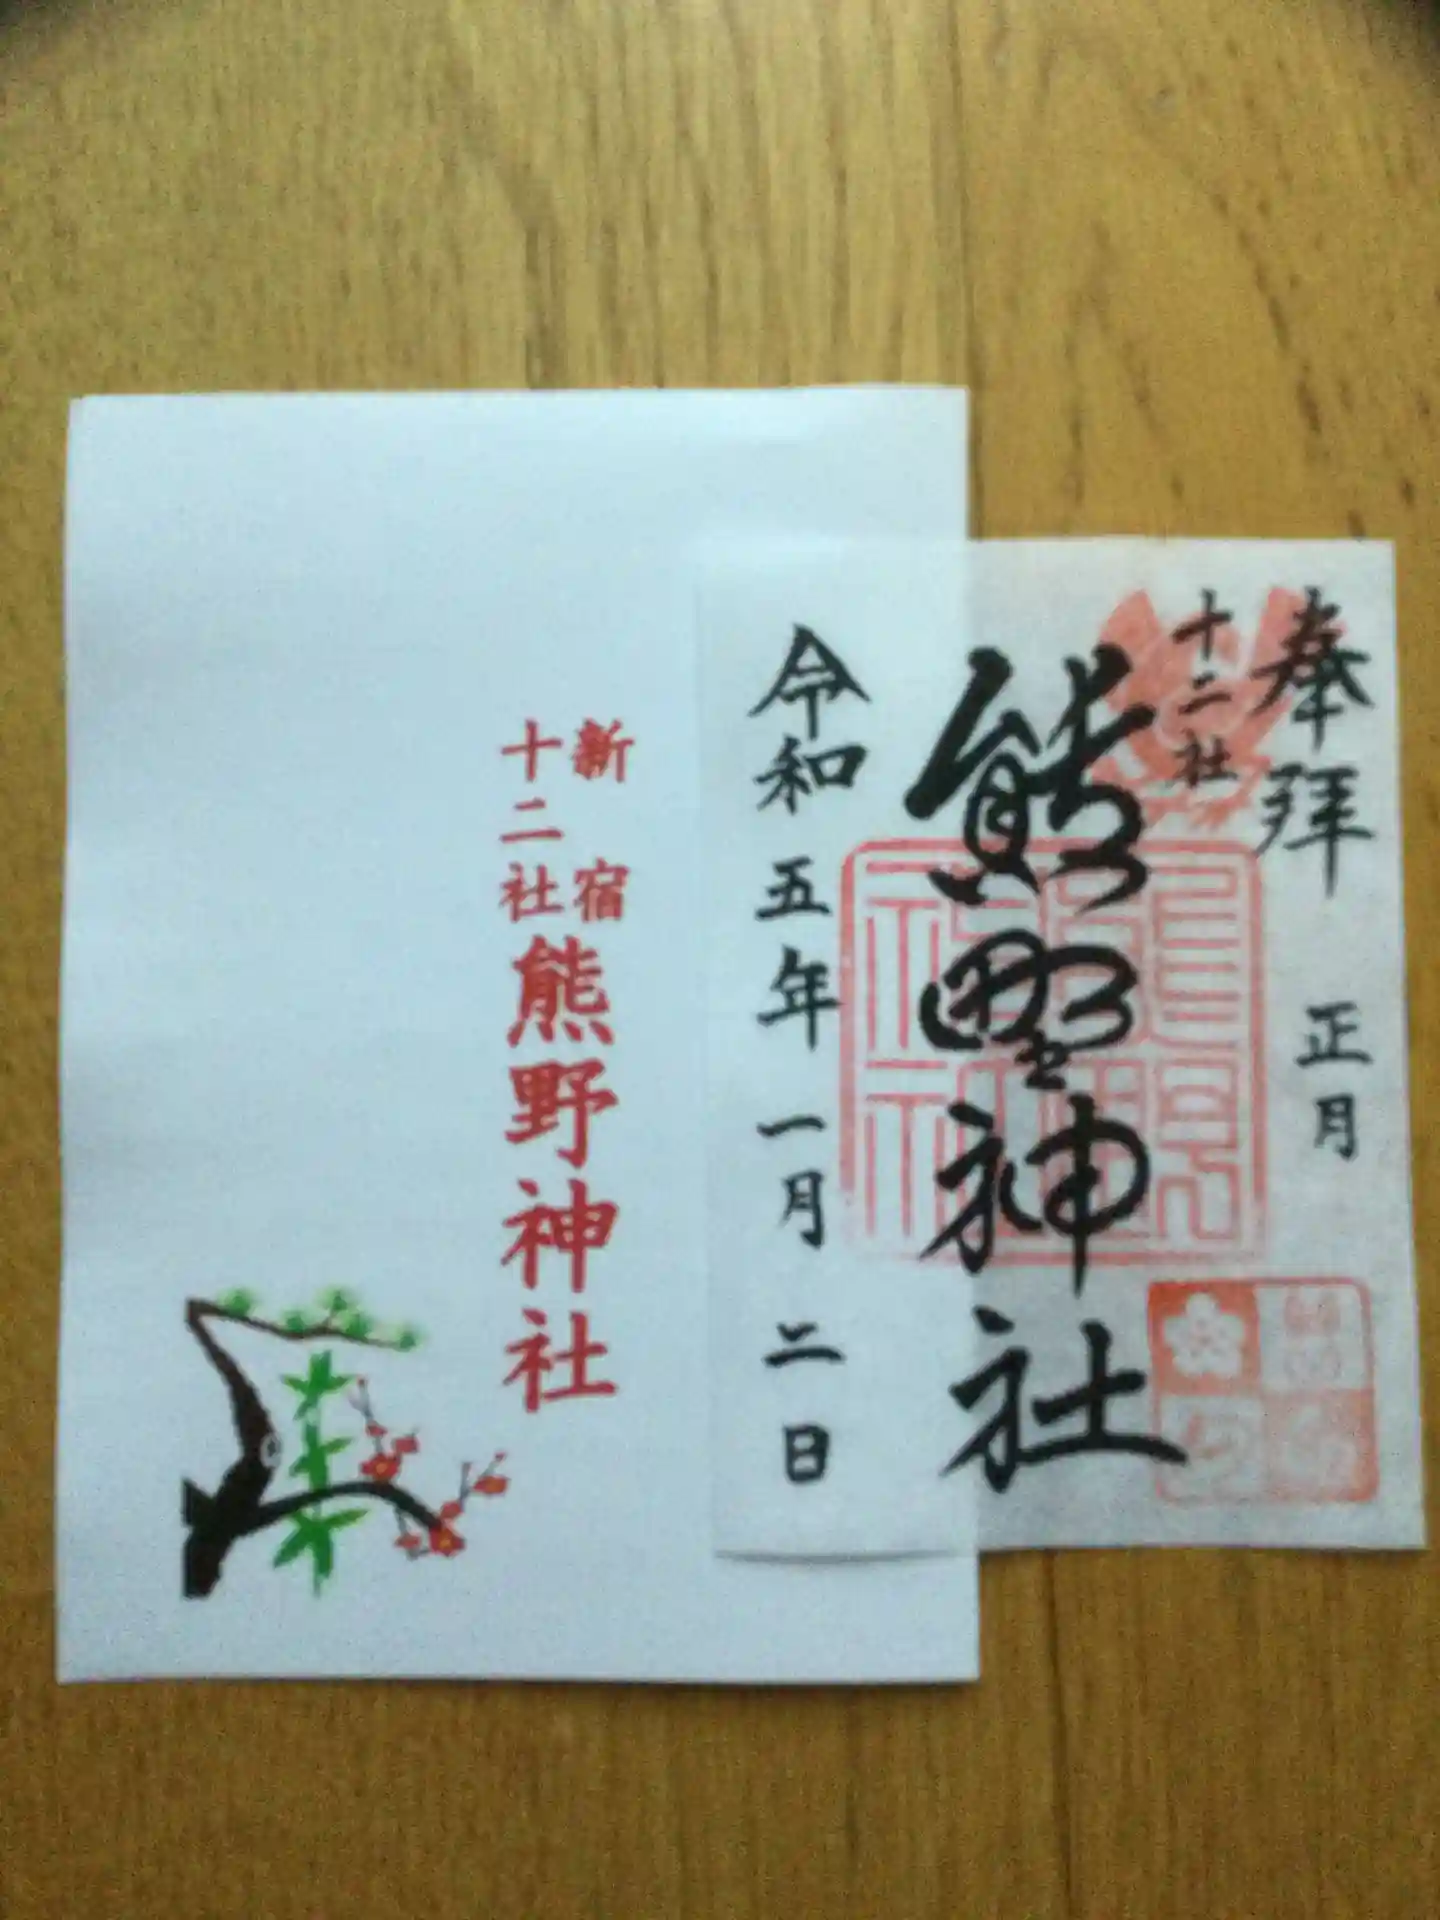 新宿
十二社
熊野神社
奉拝 正月
十二社
熊野神社
令和五年一月二日